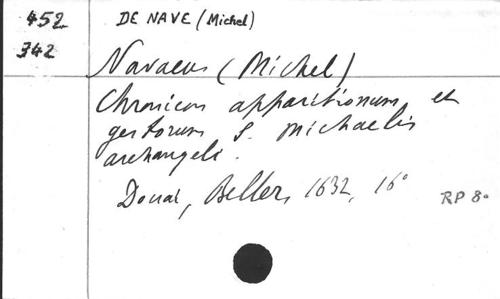 452 DE NAVE (Michel)
342
Navaeus (Michel)
Chronicon apparitionum et
gestorum S. Michaelis
archangeli.
Douai, Beller, 1632, 16°
RP 8°